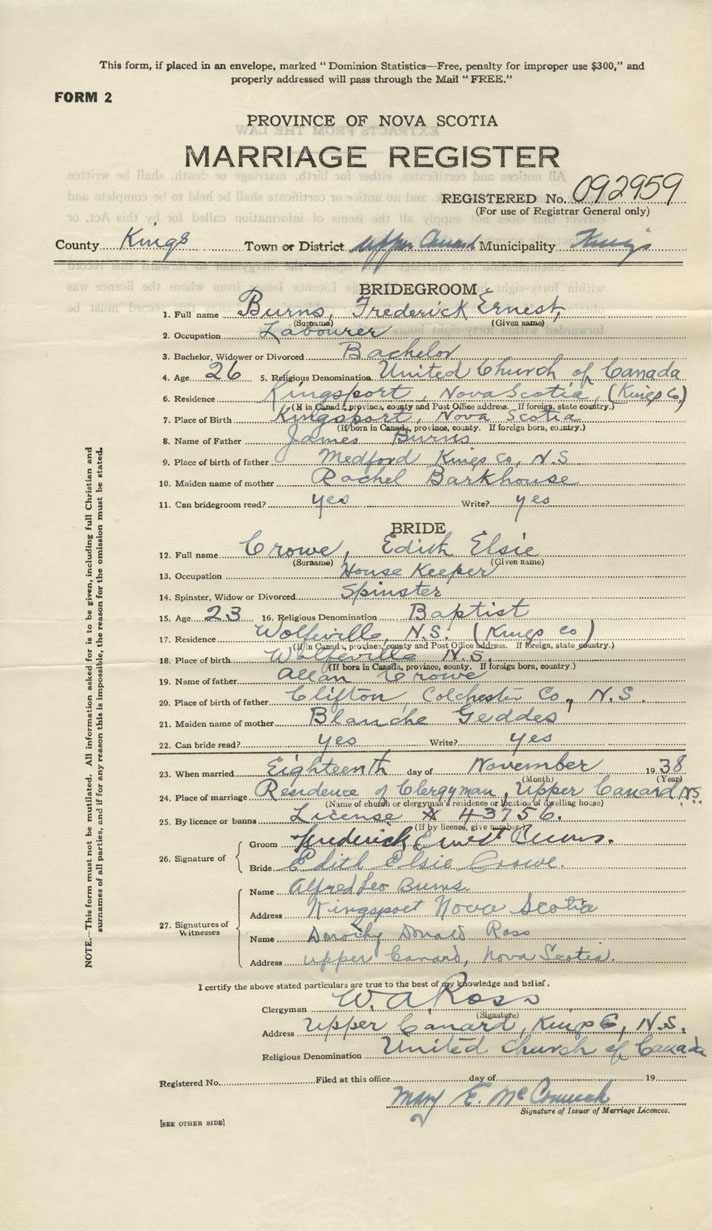 This form, if placed in an envelope, marked “ Dominion Statistics—Free, penalty for improper use $300,” and
properly addressed will pass through the Mail “ FREE.”
FORM 2
PROVINCE OF NOVA SCOTIA
MARRIAGE REGISTER
REGISTERED No. 092959
(For use of Registrar General only)
County Kings Town or District Upper Canard Municipality Kings
BRIDEGROOM
1. Full name Burns, Frederick Ernest,
(Surname) (Given name)
2. Occupation Labourer
3. Bachelor, Widower or Divorced Bachelor
4. Age 26 5. Religious Denomination United Church of Canada
6. Residence Kingsport, Nova Scotia, (Kings Co)
(If in Canada, province, county and Post Office address. If foreign, state country.)
7. Place of Birth Kingsport, Nova Scotia
(If born in Canada, province, county. If foreign born, country.)
8. Name of Father James Burns
9. Place of birth of father Medford Kings Co, N.S
10. Maiden name of mother Rachel Barkhouse
11. Can bridegroom read? yes Write? yes
BRIDE
12. Full name Crowe, Edith Elsie
(Surname) (Given name)
13. Occupation House Keeper
14. Spinster, Widow or Divorced Spinster
15. Age 23 16. Religious Denomination Baptist
17. Residence Wolfville, N.S. (Kings Co)
(If in Canada, province, county and Post Office address. If foreign, state country.)
18. Place of birth Wolfville N.S.
(If born in Canada, province, county. If foreign born, country.)
19. Name of father Allan Crowe
20. Place of birth of father Clifton, Colchester Co, N.S.
21. Maiden name of mother Blanche Geddes
22. Can bride read? yes Write? yes
23. When married Eighteenth day of November 1938
(Month) (Year)
24. Place of marriage Residence of Clergyman, Upper Canard N.S.
(Name of church or clergyman's residence or location of dwelling house)
25. By licence or banns License # 43756.
(If by licence, give number)
26. Signature of
Groom Frederick Ernest Burns.
Bride Edith Elsie Crowe.
27. Signatures of Witnesses
Name Alfred Leo Burns.
Address Kingsport Nova Scotia
Name Dorothy Donald Ross
Address upper Canard, Nova Scotia.
I certify the above stated particulars are true to the best of my knowledge and belief.
Clergyman W. A. Ross
(Signature)
Address Upper Canard, Kings Co, N.S.
Religious Denomination United Church of Canada
Registered No. Filed at this office day of 19
Mary E. McCormick
Signature of Issuer of Marriage Licences.
[SEE OTHER SIDE]
NOTE.—This form must not be mutilated. All information asked for is to be given, including full Christian and
surnames of all parties, and if for any reason this is impossible, the reason for the omission must be stated.